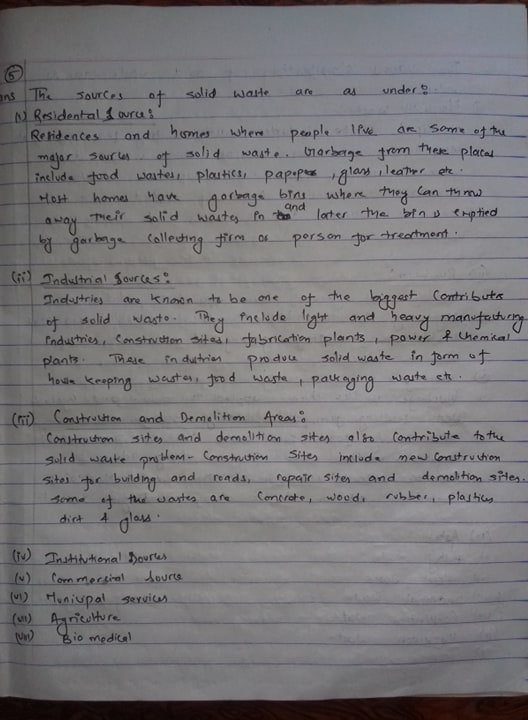 5
ans The sources of solid waste are as under:
(i) Residental Source:
Residences and homes where people live are some of the
major sources of solid waste. Garbage from these places
include food wastes, plastics, papers, glass, leather etc.
Most homes have garbage bins where they can throw
away their solid wastes in and later the bin is emptied
by garbage collecting firm or person for treatment.
(ii) Industrial Sources:
Industries are known to be one of the biggest contributs
of solid waste. They include light and heavy manufacturing
industries, construction sites, fabrication plants, power & chemical
plants. These industries produce solid waste in form of
house keeping wastes, food waste, packaging waste etc.
(iii) Construction and Demolition Areas:
Construction sites and demolition sites also contribute to the
solid waste problem- Construction Sites include new construction
sites for building and roads, repair sites and demolition sites.
some of the wastes are concrete, wood, rubber, plastics
dirt & glass.
(iv) Institutional Sources
(v) Commercial Source
(vi) Municipal services
(vii) Agriculture
(viii) Bio medical